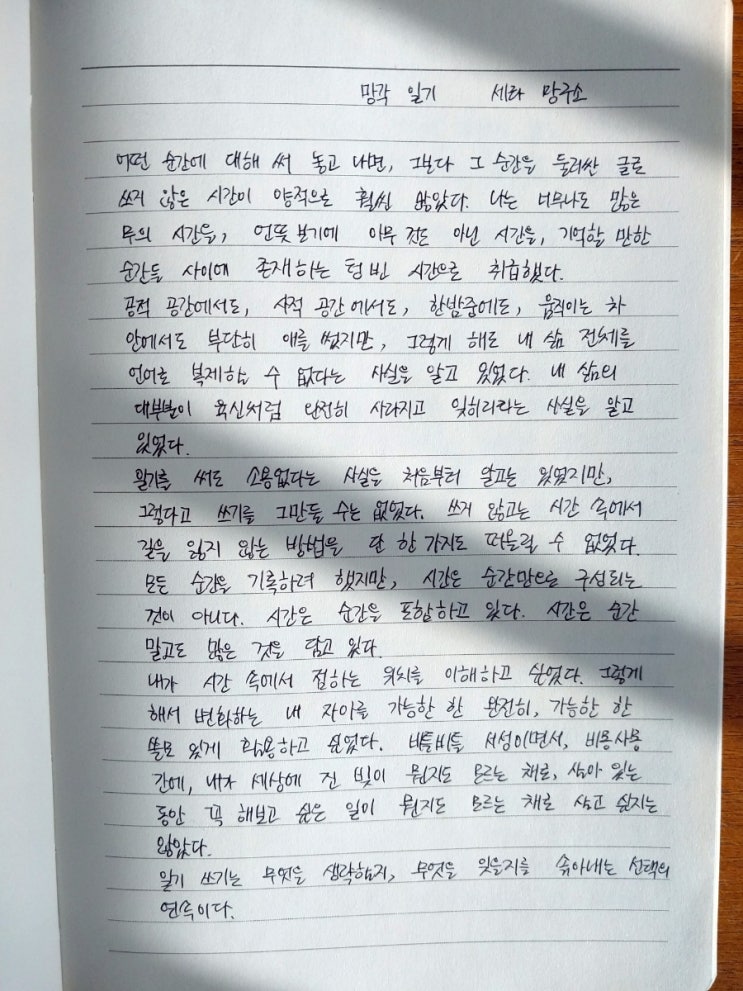 망각 일기 세라 망구소
어떤 순간에 대해 써 놓고 나면, 그보다 그 순간을 둘러싼 글로
쓰지 않은 시간이 양적으로 훨씬 많았다. 나는 너무나도 많은
무의 시간을, 언뜻 보기에 아무 것도 아닌 시간을, 기억할 만한
순간들 사이에 존재하는 텅 빈 시간으로 취급했다.
공적 공간에서도, 사적 공간에서도, 한밤중에도, 움직이는 차
안에서도 부단히 애를 썼지만, 그렇게 해도 내 삶 전체를
언어로 복제할 수 없다는 사실을 알고 있었다. 내 삶의
대부분이 육신처럼 완전히 사라지고 잊히리라는 사실을 알고
있었다.
일기를 써도 소용없다는 사실을 처음부터 알고는 있었지만,
그렇다고 쓰기를 그만둘 수는 없었다. 쓰지 않고는 시간 속에서
길을 잃지 않는 방법을 단 한 가지도 떠올릴 수 없었다.
모든 순간을 기록하려 했지만, 시간은 순간만으로 구성되는
것이 아니다. 시간은 순간을 포함하고 있다. 시간은 순간
말고도 많은 것을 담고 있다.
내가 시간 속에서 점하는 위치를 이해하고 싶었다. 그렇게
해서 변화하는 내 자아를 가능한 한 완전히, 가능한 한
쓸모 있게 활용하고 싶었다. 비틀비틀 서성이면서, 비몽사몽
간에, 내가 세상에 진 빚이 뭔지도 모르는 채로, 살아 있는
동안 꼭 해보고 싶은 일이 뭔지도 모르는 채로 살고 싶지는
않았다.
일기 쓰기는 무엇을 생각할지, 무엇을 잊을지를 솎아내는 선택의
연속이다.